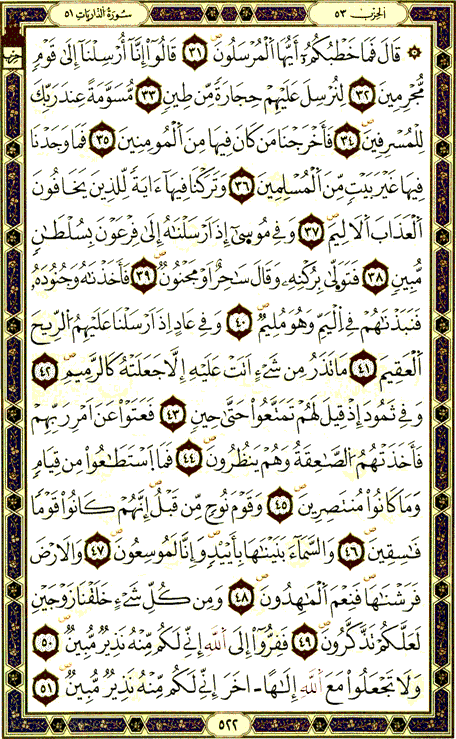 سُورَةُ الذَّارِيَاتِ ٥١
الحِزْب ٥٣
۞ قَالَ فَمَا خَطْبُكُمُۥٓ أَيُّهَا اَ۬لْمُرْسَلُونَۖ ٣١ قَالُوٓاْ إِنَّآ أُرْسِلْنَآ إِلَىٰ قَوْمٖ
مُّجْرِمِينَ ٣٢ لِنُرْسِلَ عَلَيْهِمْ حِجَارَةٗ مِّن طِينٖ ٣٣ مُّسَوَّمَةً عِندَ رَبِّكَ
لِلْمُسْرِفِينَۖ ٣٤ فَأَخْرَجْنَا مَن كَانَ فِيهَا مِنَ اَ۬لْمُومِنِينَ ٣٥ فَمَا وَجَدْنَا
فِيهَا غَيْرَ بَيْتٖ مِّنَ اَ۬لْمُسْلِمِينَۖ ٣٦ وَتَرَكْنَا فِيهَآ ءَايَةٗ لِّلذِينَ يَخَافُونَ
اَ۬لْعَذَابَ اَ۬لَالِيمَۖ ٣٧ وَفِي مُوس۪ىٰٓ إِذَ اَرْسَلْنَٰهُ إِلَىٰ فِرْعَوْنَ بِسُلْطَٰنٖ
مُّبِينٖ ٣٨ فَتَوَلّ۪ىٰ بِرُكْنِهِۦ وَقَالَ سَٰحِرٌ اَوْ مَجْنُونٞۖ ٣٩ فَأَخَذْنَٰهُ وَجُنُودَهُۥ
فَنَبَذْنَٰهُمْ فِي اِ۬لْيَمِّ وَهُوَ مُلِيمٞۖ ٤٠ وَفِي عَادٍ اِذَ اَرْسَلْنَا عَلَيْهِمُ اُ۬لرِّيحَ
اَ۬لْعَقِيمَ ٤١ مَا تَذَرُ مِن شَيْءٍ اَتَتْ عَلَيْهِ إِلَّا جَعَلَتْهُ كَالرَّمِيمِۖ ٤٢
وَفِي ثَمُودَ إِذْ قِيلَ لَهُمْ تَمَتَّعُواْ حَتَّىٰ حِينٖ ٤٣ فَعَتَوْاْ عَنَ اَمْرِ رَبِّهِمْ
فَأَخَذَتْهُمُ اُ۬لصَّٰعِقَةُ وَهُمْ يَنظُرُونَۖ ٤٤ فَمَا اَ۪سْتَطَٰعُواْ مِن قِيَامٖ
وَمَا كَانُواْ مُنتَصِرِينَۖ ٤٥ وَقَوْمَ نُوحٖ مِّن قَبْلُۖ إِنَّهُمْ كَانُواْ قَوْماٗ
فَٰسِقِينَۖ ٤٦ وَالسَّمَآءَ بَنَيْنَٰهَا بِأَيْيْدٖ وَإِنَّا لَمُوسِعُونَۖ ٤٧ وَالَارْضَ
فَرَشْنَٰهَا فَنِعْمَ اَ۬لْمَٰهِدُونَۖ ٤٨ وَمِن كُلِّ شَيْءٍ خَلَقْنَا زَوْجَيْنِ
لَعَلَّكُمْ تَذَّكَّرُونَۖ ٤٩ فَفِرُّوٓاْ إِلَى اَ۬للَّهِ إِنِّي لَكُم مِّنْهُ نَذِيرٞ مُّبِينٞۖ ٥٠
وَلَا تَجْعَلُواْ مَعَ اَ۬للَّهِ إِلَٰهاً ـ اخَرَ إِنِّي لَكُم مِّنْهُ نَذِيرٞ مُّبِينٞۖ ٥١
٥٢٢